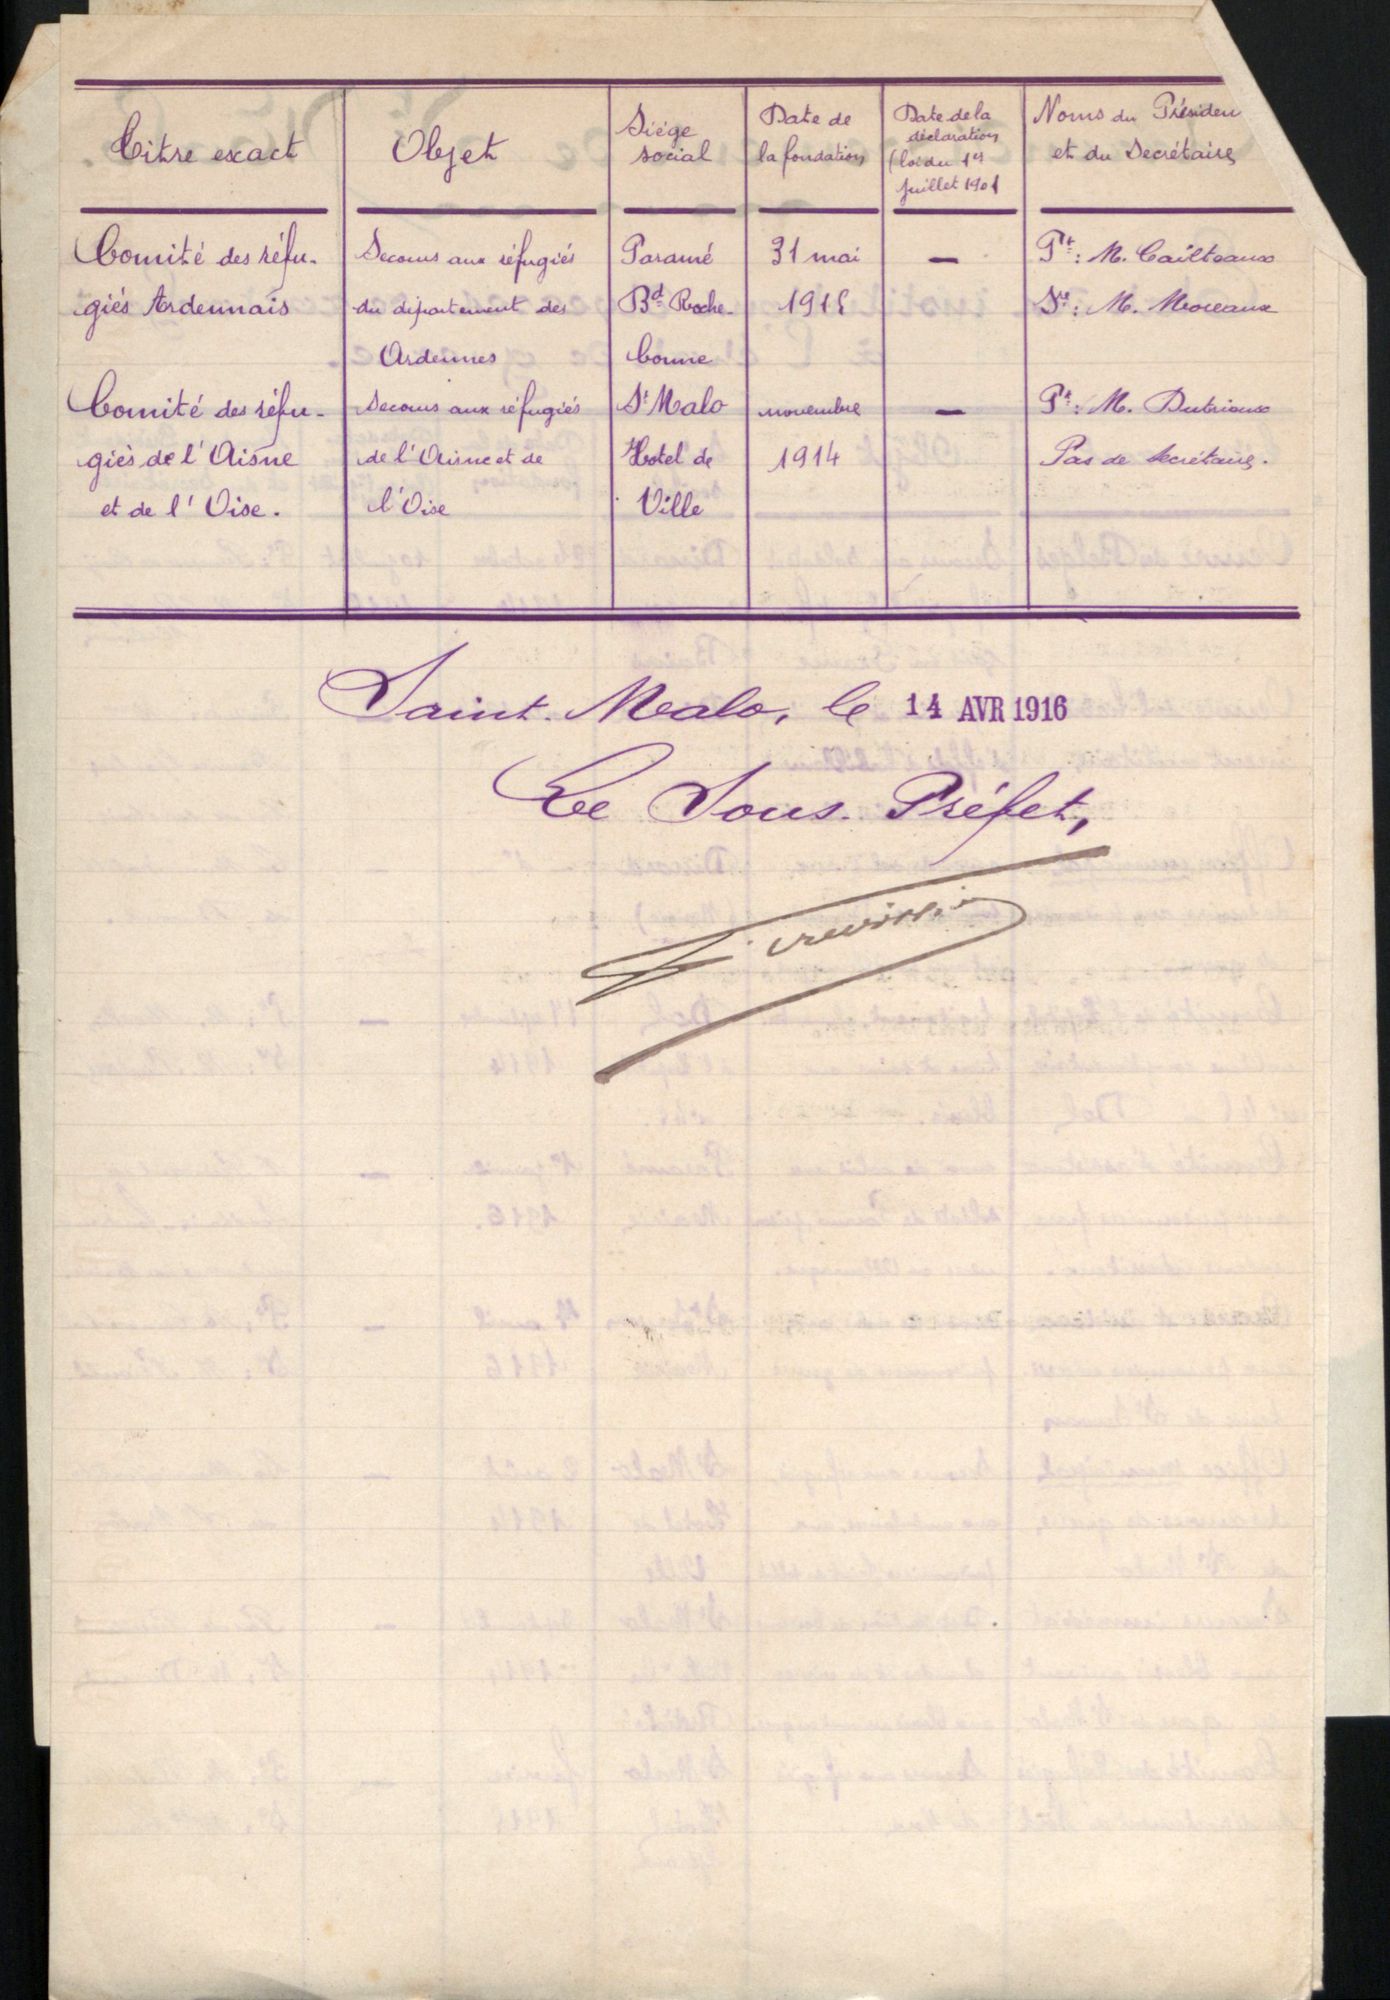 Titre exact
Objet
Siège
social
Date de
la fondation
Date de la
déclaration
(loi du 1er
juillet 1901
Noms du Présiden
et du Secrétaire
Comité des réfu-
giés Ardennais
Secours aux réfugiés
du département des
Ardennes
Paramé
Bd Roche-
bonne
31 mai
1915
—
Pt : M. Cailteaux
Sre : M. Moreaux
Comité des réfu-
giés de l'Aisne
et de l'Oise.
Secours aux réfugiés
de l'Aisne et de
l'Oise
St Malo
Hotel de
Ville
novembre
1914
—
Pt : M. Dutrioux
Pas de Secrétaire.
Saint-Malo, le 14 AVR 1916
Le Sous-Préfet,